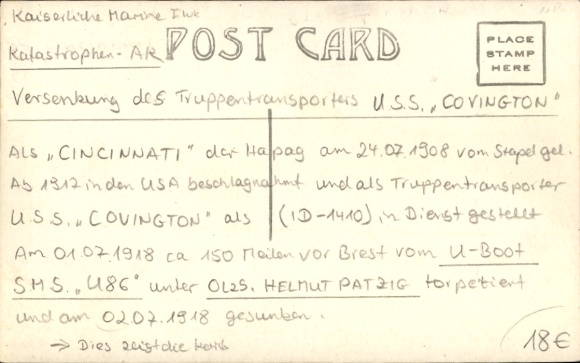 Kaiserliche Marine
Katastrophen-AK
POST CARD
PLACE
STAMP
HERE
Versenkung des Truppentransporters U.S.S. „COVINGTON"
Als „CINCINNATI" der Hapag am 24.07.1908 vom Stapel gel.
Ab 1917 in den USA beschlagnahmt und als Truppentransporter
U.S.S. „COVINGTON" als (ID-1410) in Dienst gestellt
Am 01.07.1918 ca 150 Meilen vor Brest vom U-Boot
SMS. „U86" unter Olzs. HELMUT PATZIG torpetiert
und am 02.07.1918 gesunken.
→ Dies zeigt die
18€